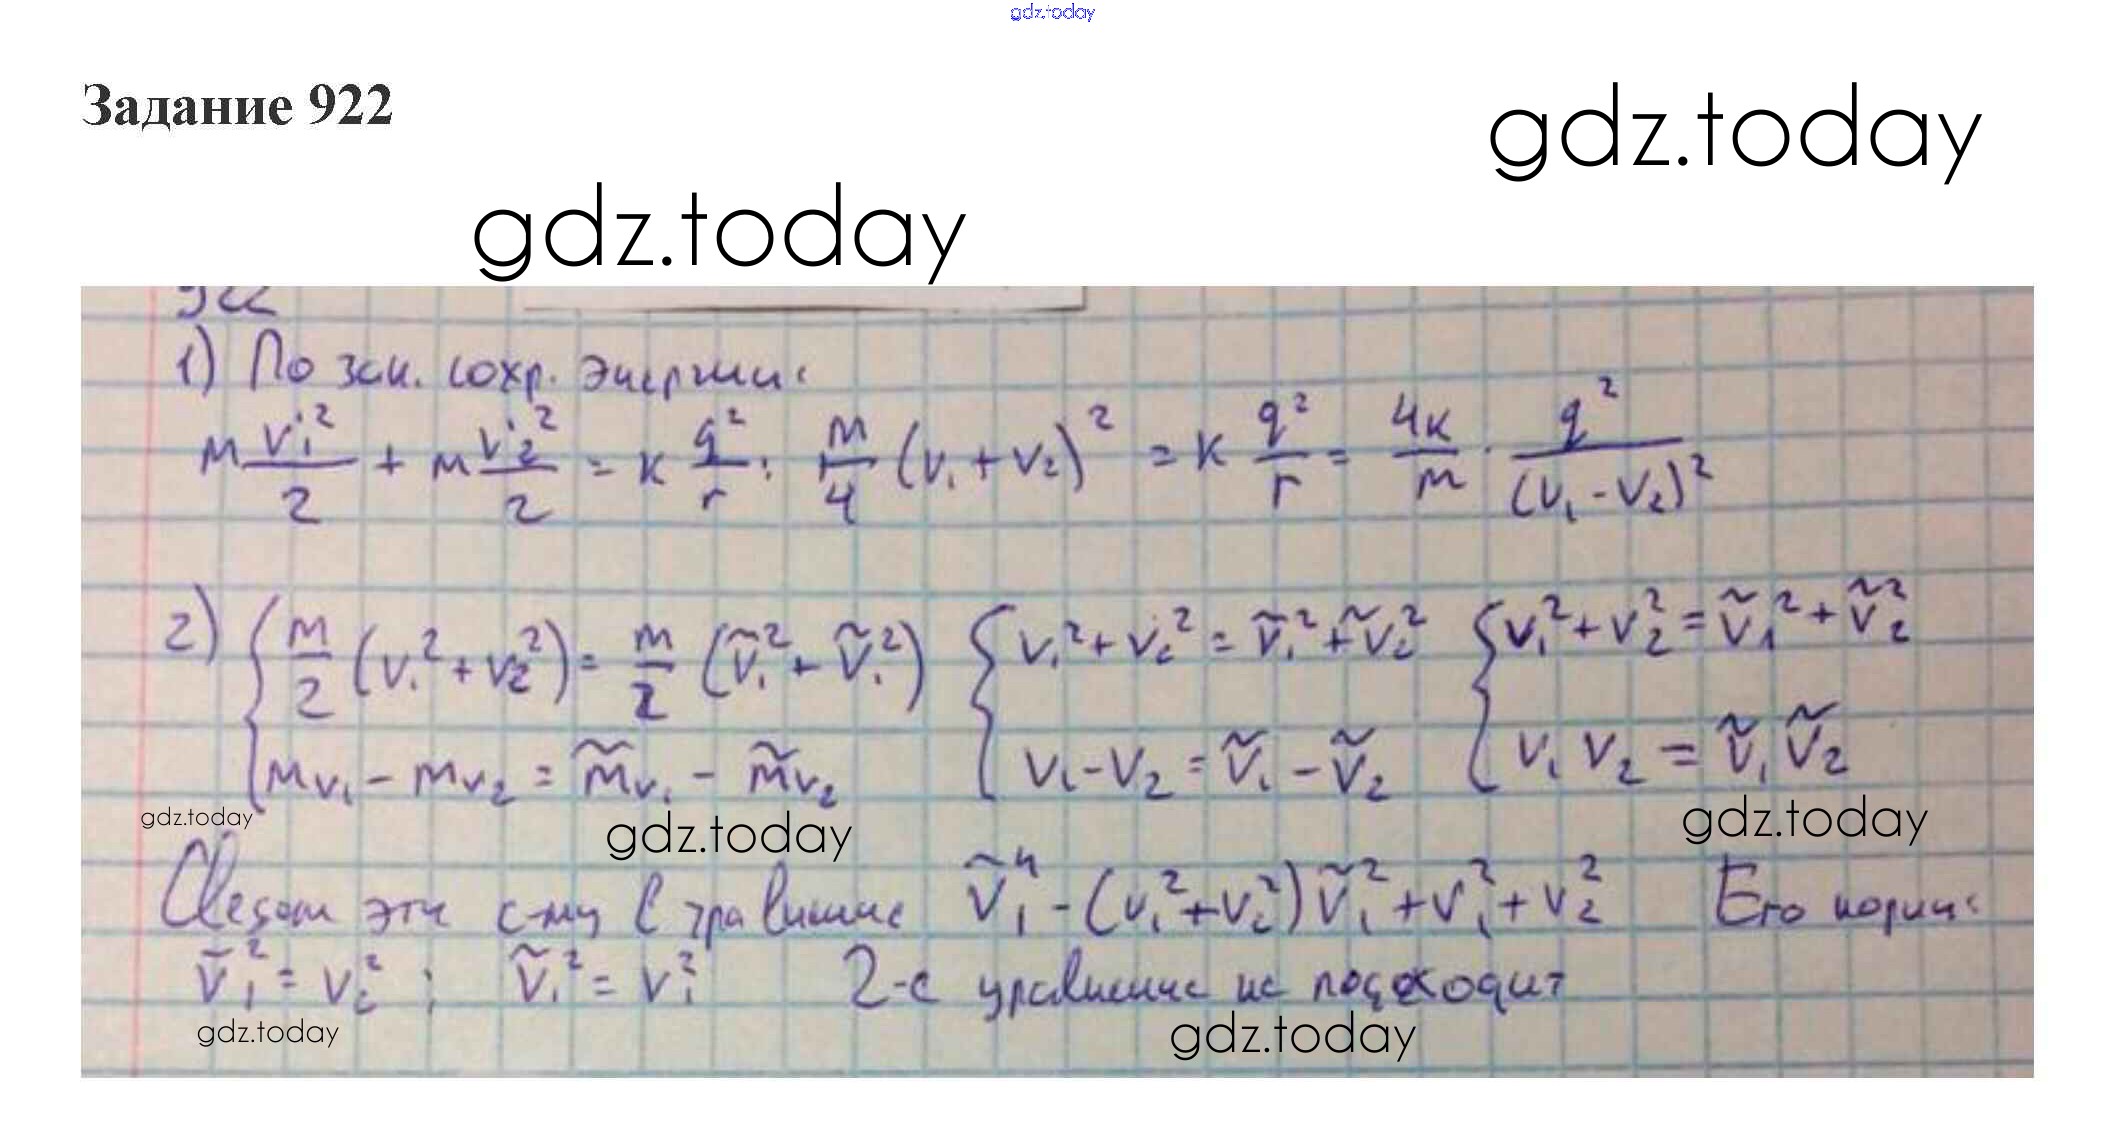 gdz.today
Задание 922
gdz.today
gdz.today
922
1) По зак. сохр. энергии:
m v₁'²/2 + m v₂'²/2 = k q²/r ; m/4 (v₁ + v₂)² = k q²/r = 4k/m · q²/(v₁ - v₂)²
2) { m/2 (v₁² + v₂²) = m/2 (ṽ₁² + ṽ₁²) { v₁² + v₂² = ṽ₁² + ṽ₂² { v₁² + v₂² = ṽ₁² + ṽ₂²
mv₁ - mv₂ = m̃v₁ - m̃v₂ v₁ - v₂ = ṽ₁ - ṽ₂ v₁ v₂ = ṽ₁ ṽ₂
gdz.today gdz.today gdz.today
Сведем эту с-му в уравнение ṽ₁⁴ - (v₁² + v₂²) ṽ₁² + v₁² + v₂² Его корни:
ṽ₁² = v₂² ; ṽ₁² = v₁² 2-е уравнение не подходит
gdz.today gdz.today